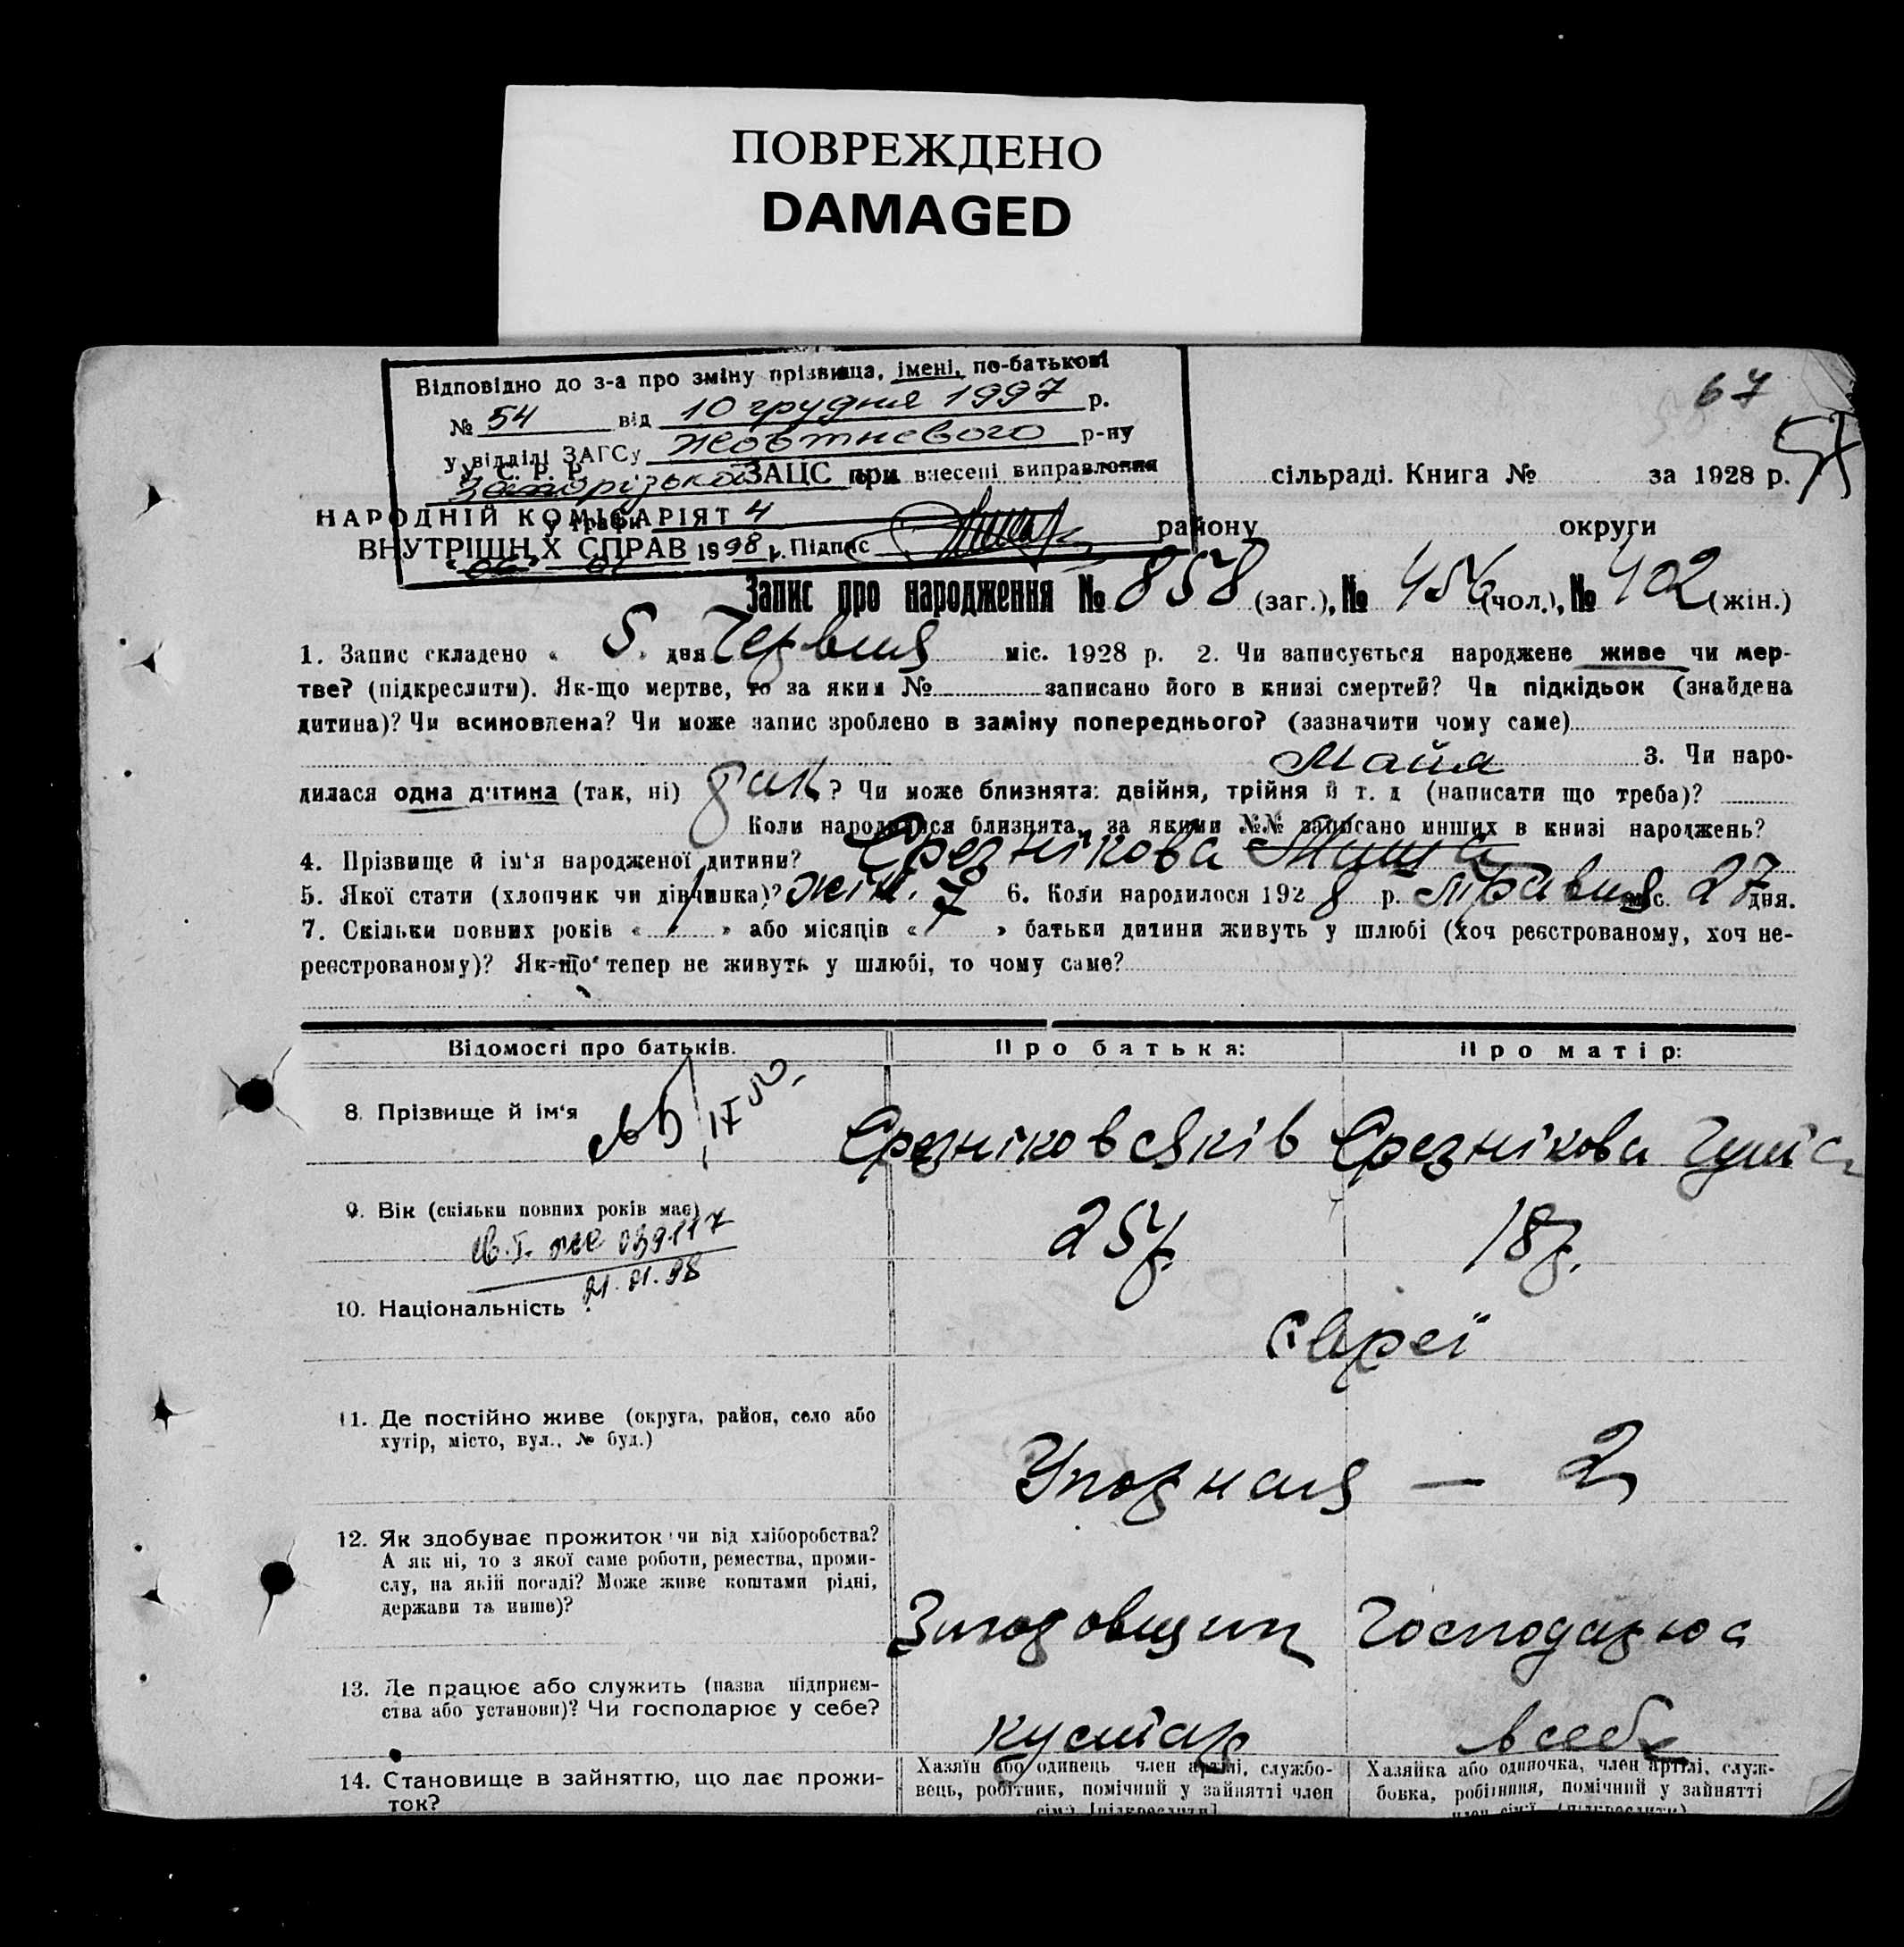 ПОВРЕЖДЕНО
DAMAGED
Відповідно до з-а про зміну прізвища, імені, по-батькові
№ 54 від 10 грудня 1997 р.
у відділі ЗАГСу Жовтневого р-ну
67
У. С. Р. Р.
ЗАЦС при внесені виправлення
сільраді. Книга № за 1928 р.
НАРОДНІЙ КОМІСАРІЯТ
у графи 4
району округи
ВНУТРІШНІХ СПРАВ
1998 р. Підпис
Запис про народження № 858 (заг.), № 456 (чол.), № 402 (жін.)
1. Запис складено « 5 » дня Червня міс. 1928 р. 2. Чи записується народжене живе чи мер-
тве? (підкреслити). Як-що мертве, то за яким № записано його в книзі смертей? Чи підкідьок (знайдена
дитина)? Чи всиновлена? Чи може запис зроблено в заміну попереднього? (зазначити чому саме)
Майя 3. Чи наро-
дилася одна дитина (так, ні) так? Чи може близнята: двійня, трійня й т. д (написати що треба)?
Коли народилися близнята, за якими №№ записано инших в книзі народжень?
4. Прізвище й ім'я народженої дитини? Срезнікова
5. Якої стати (хлопчик чи дівчинка)? жін. 6. Коли народилося 1928 р. травня міс. 27 дня.
7. Скільки повних років « 1 » або місяців « » батьки дитини живуть у шлюбі (хоч реєстрованому, хоч не-
реєстрованому)? Як-що тепер не живуть у шлюбі, то чому саме?
Відомості про батьків. Про батька: Про матір:
8. Прізвище й ім'я
Срезніков Яків Срезнікова
9. Вік (скільки повних років має) 25 р. 18 р.
039117
21.01.98
10. Національність
євреї
11. Де постійно живе (округа, район, село або
хутір, місто, вул., № буд.)
— 2
12. Як здобуває прожиток чи від хліборобства?
А як ні, то з якої саме роботи, ремества, проми-
слу, на якій посаді? Може живе коштами рідні,
держави та инше)?
Господарює
13. Де працює або служить (назва підприєм-
ства або установи)? Чи господарює у себе?
кустар в себе
14. Становище в зайняттю, що дає прожи-
ток?
Хазяїн або одинець член артілі, службо-
вець, робітник, помічний у зайнятті член
сім'ї [підкреслити]
Хазяйка або одиночка, член артілі, служ-
бовка, робітниця, помічний у зайнятті
член сім'ї (підкреслити)